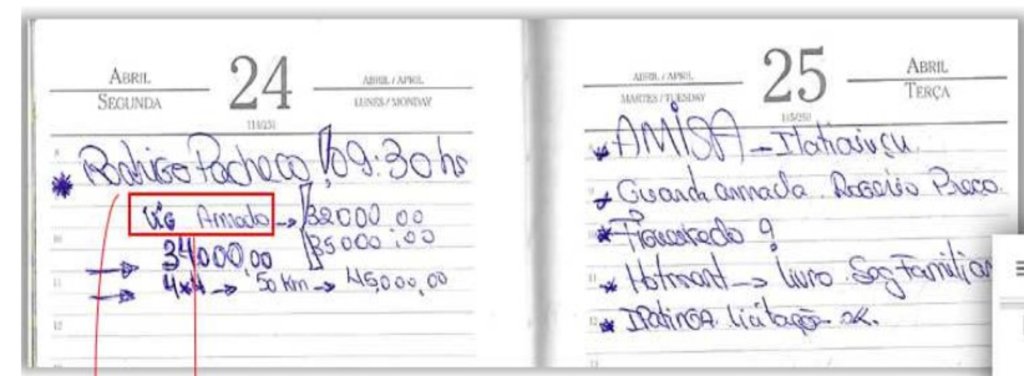 ABRIL
SEGUNDA
24
ABRIL / APRIL
LUNES / MONDAY
Rodrigo Pacheco 09:30 hs
Vig Armado → 32000.00
35000.00
34000,00
4x4 → 50 km → 45,000,00
ABRIL / APRIL
MARTES / TUESDAY
25
ABRIL
TERÇA
AMISA - Itatiaiuçu
Guarda armada. Rogério Preço.
?
Hotmart → Livro. Seg Familiar
Ipatinga licitação ok.